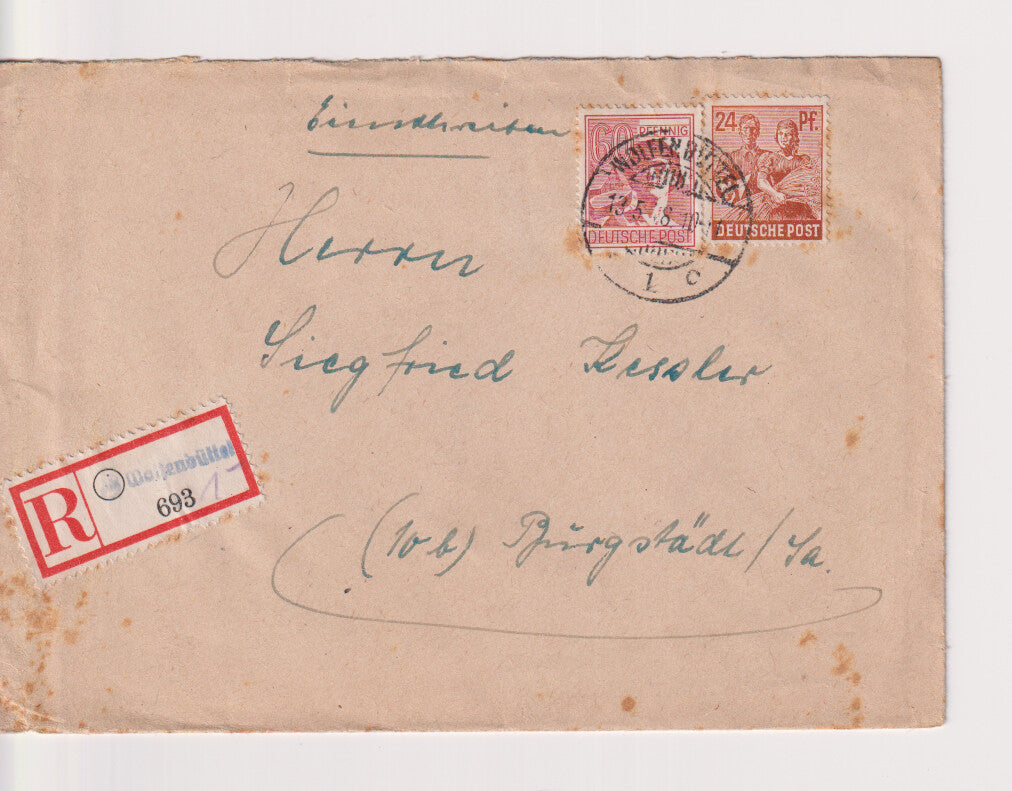 Einschreiben
60 PFENNIG
DEUTSCHE POST
24 Pf.
DEUTSCHE POST
WOLFENBÜTTEL
13.5.48.10-
1 c
Herrn
Siegfried Kessler
R
Wolfenbüttel
693
(10b) Burgstädt/Sa.